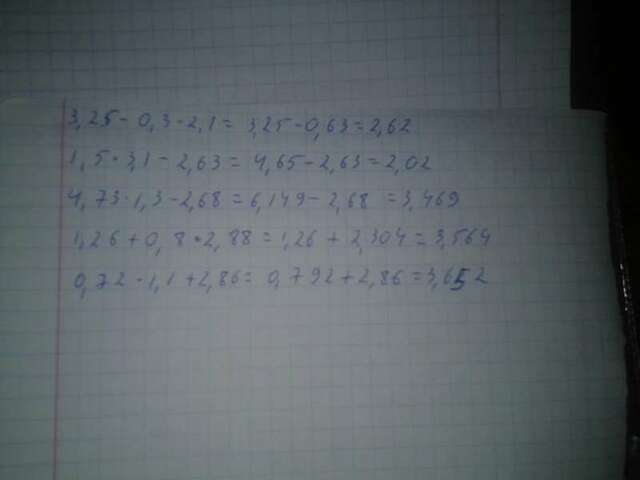 3,25-0,3·2,1= 3,25-0,63=2,62
1,5·3,1-2,63= 4,65-2,63=2,02
4,73·1,3-2,68=6,149-2,68 =3,469
1,26+0,8·2,88=1,26+2,304=3,564
0,72·1,1+2,86= 0,792+2,86=3,652